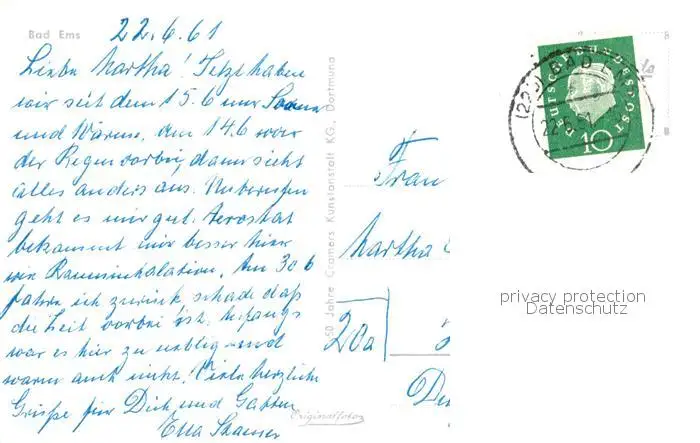 Bad Ems
22.6.61
Liebe Martha! Jetzt haben
wir seit dem 15.6 nur Sonne
und Wärme. Am 14.6 war
der Regen vorbei, dann sieht
alles anders aus. Unberufen
geht es mir gut. Aerostat
bekommt mir besser hier
wie Rauminhalation. Am 30 6
fahre ich zurück, schade daß
die Zeit vorbei ist. Anfangs
war es hier zu neblig und
warm auch nicht. Viele herzliche
Grüße für Dich und Gatten
Ella
50 Jahre Cramers Kunstanstalt KG., Dortmund
Originalfoto
Frau
Martha
20a
DEUTSCHE BUNDESPOST
10
BAD EMS
22.6.61
privacy protection
Datenschutz